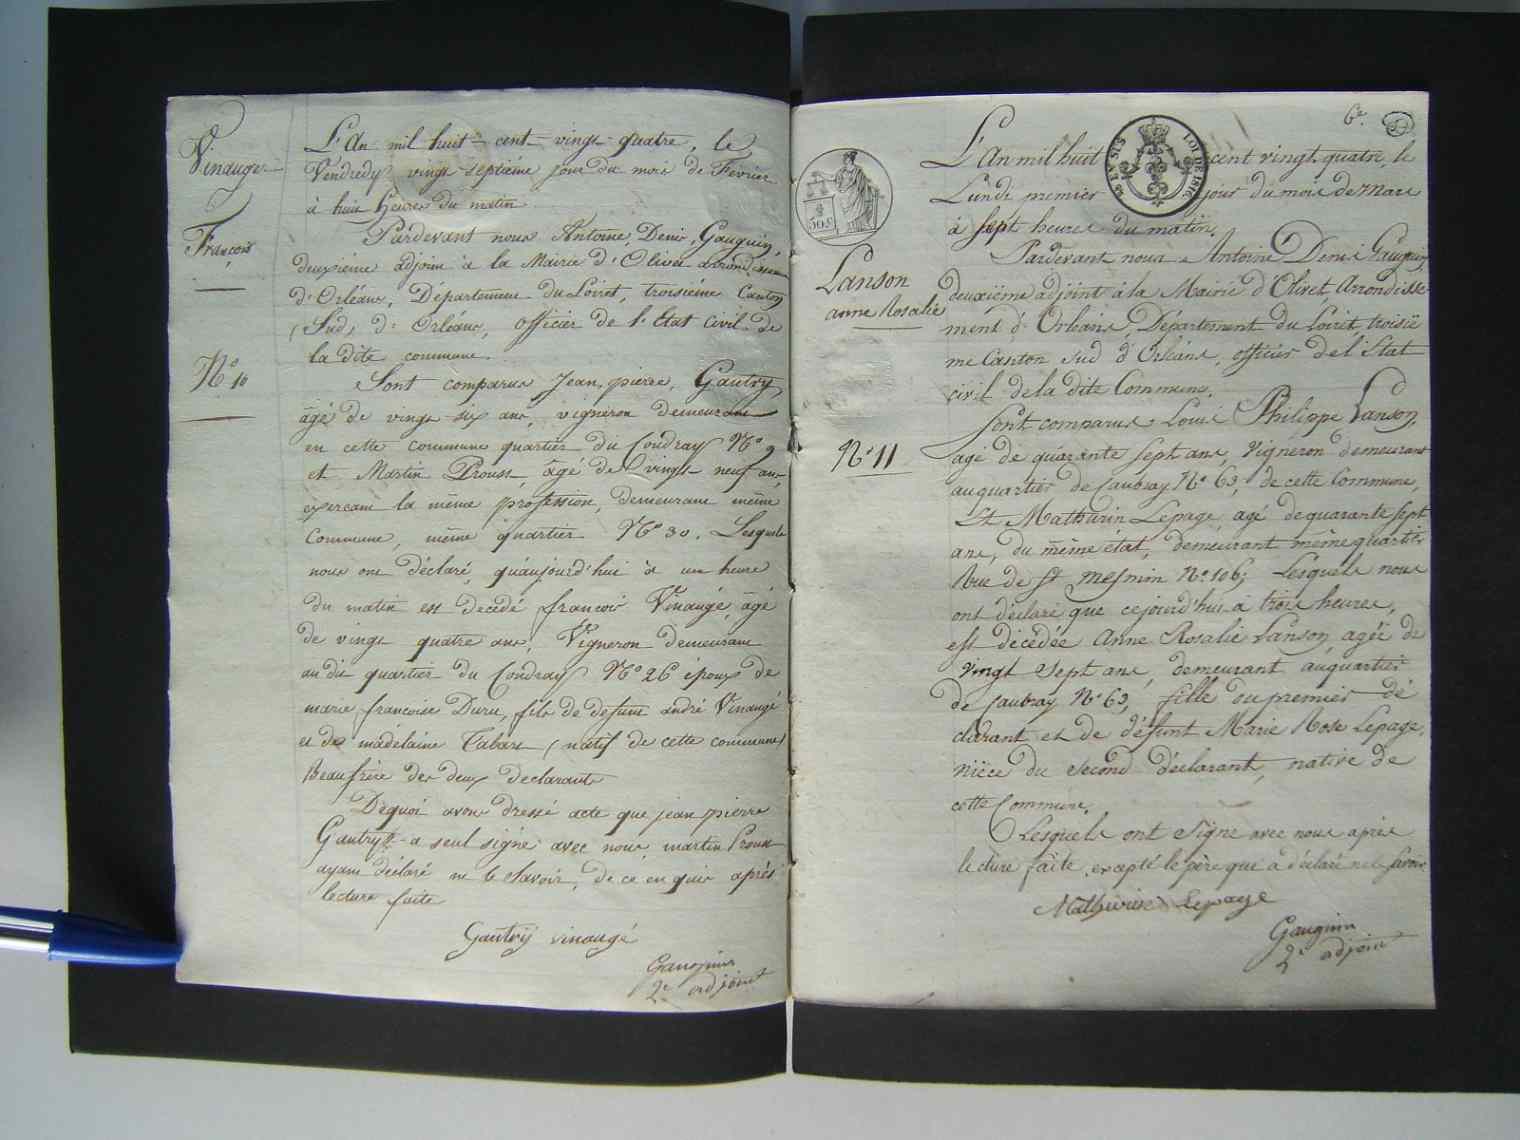 Vinauger
François
N.° 10
L'An mil huit cent vingt quatre, le
Vendredy vingt septieme jour du mois de Fevrier
à huit heures du matin
Pardevant nous Antoine, Denis, Gauguin,
deuxième adjoint à la Mairie d'Olivet arrondissem
d'Orléans, Département du Loiret, troisiéme Canton
(Sud) d'Orléans, officier de l'État Civil de
la dite commune.
Sont comparus Jean, pierre, Gautry,
âgé de vingt six ans, vigneron demeurant
en cette commune quartier du Coudray N.° 9
et Martin Proust, âgé de vingt neuf ans,
exercant la même profession, demeurant même
Commune, même quartier N.° 30. Lesquels
nous ont déclaré, quaujourd'hui à une heure
du matin est décédé françois Vinaugé, âgé
de vingt quatre ans, Vigneron demeurant
au dit quartier du Coudray N.° 26 époux de
marie francoise Duru, fils de defunt andré Vinaugé
et de madelaine Tabart (natif de cette commune)
Beaufrère des deux declarants
Dequoi avons dressé acte que jean pierre
Gautry a seul signé avec nous, martin Proust
ayant déclaré ne le Savoir, de ce enquis après
lecture faite
Gautry vinaugé
Gauguin
2.e adjoint
6.e
EN SUS
LOI DE 1816
50c
Lanson
anne Rosalie
N.° 11
L'An mil huit cent vingt quatre, le
Lundi premier jour du mois de Mars
à Sept heures du matin,
Pardevant nous Antoine Denis Gauguin,
deuxiëme adjoint à la Mairie d'Olivet, Arrondisse
ment d'Orléans, Département du Loiret, troisië
me Canton Sud d'Orléans, officier de l'Etat
civil de la dite Commune,
Sont comparus Louis Philippe Lanson,
agé de quarante Sept ans, Vigneron demeurant
auquartier de Caubray N.° 63, de cette Commune,
Et Mathurin Lepage, agé de quarante Sept
ans, du même état, demeurant même quartier
Rue de St mesmin N.° 106; Lesquels nous
ont déclaré que cejourd'hui à trois heures,
est décédée Anne Rosalie Lanson, agée de
vingt Sept ans, demeurant auquartier
de Caubray N.° 63, fille du premier dé
clarant et de défunt Marie Rose Lepage,
niëce du Second déclarant, native de
cette Commune.
Lesquels ont Signé avec nous après
lecture faite, excepté le père que à déclaré ne le Savoir
Mathurin Lepage
Gauguin
2.e adjoint